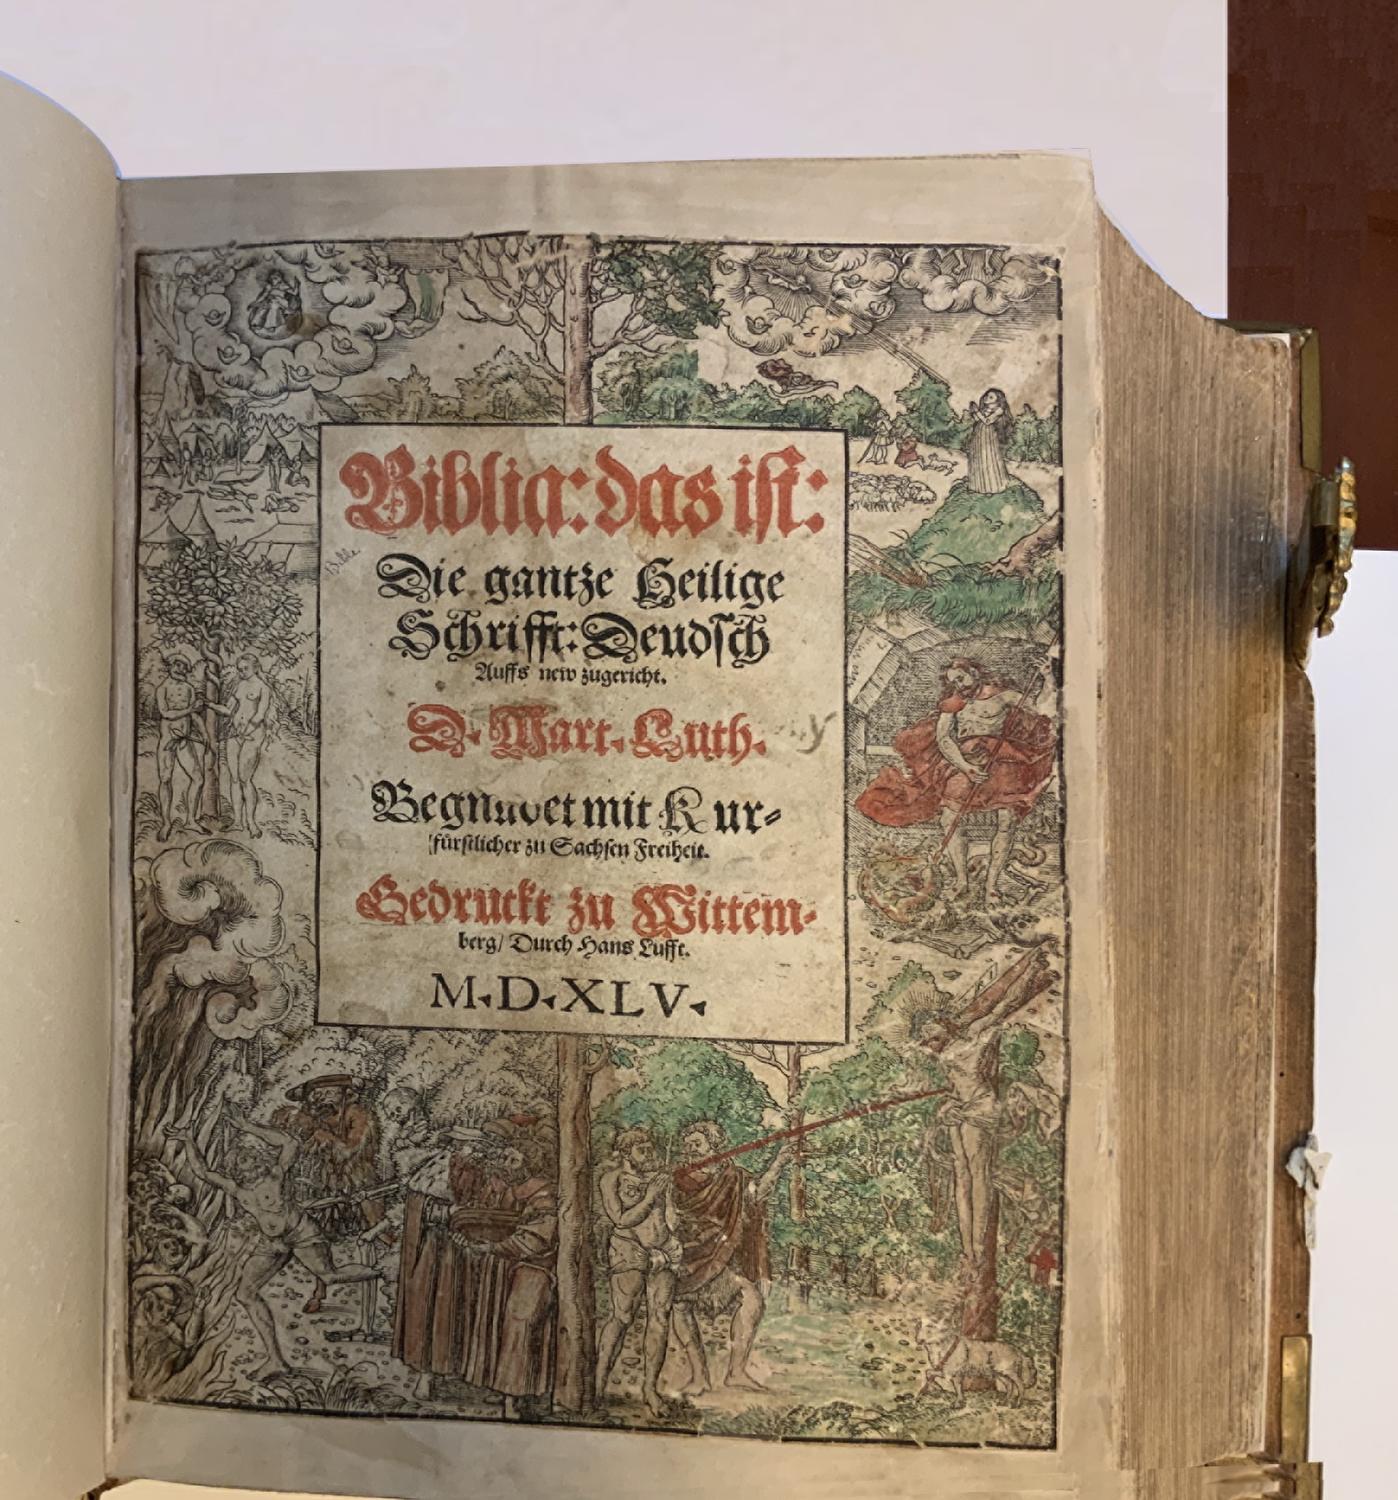 Biblia: das ist:
Die gantze Heilige
Schrifft: Deudsch
Auffs new zugericht.
D. Mart. Luth.
Begnadet mit Kur-
fürstlicher zu Sachsen Freiheit.
Gedruckt zu Wittem-
berg/ Durch Hans Lufft.
M. D. XLV.